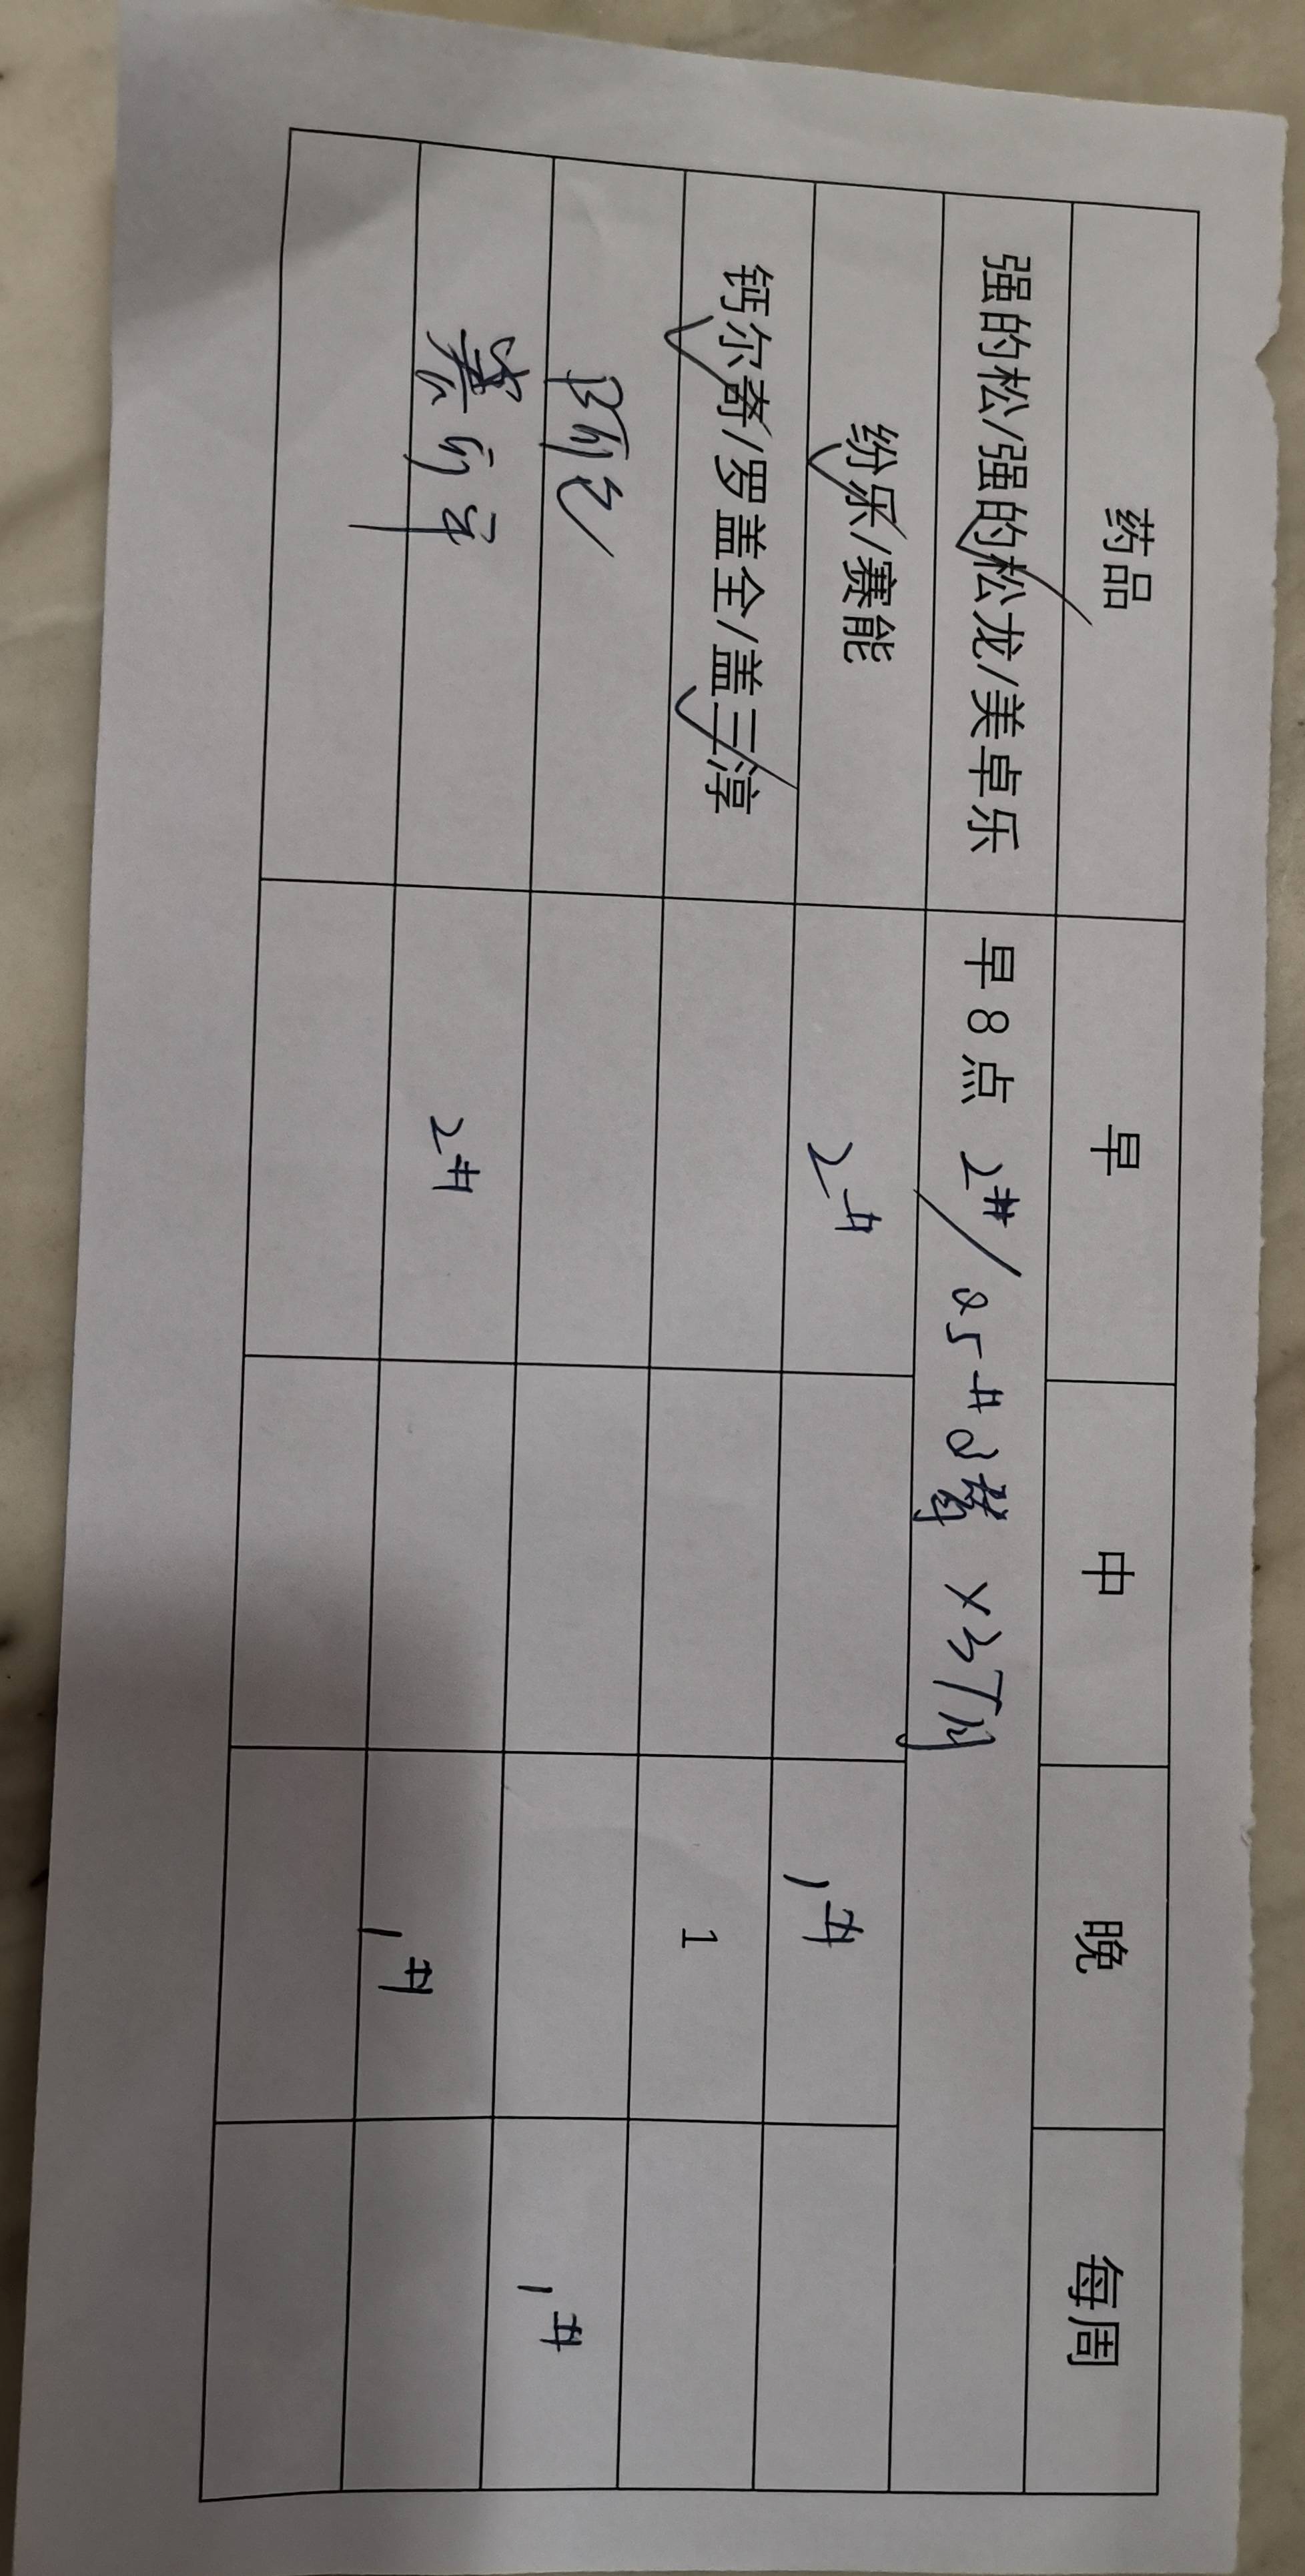 药品 早 中 晚 每周
强的松/强的松龙/美卓乐 早8点 2#/ 0.5# ×3个月
纷乐/赛能 2# 1#
钙尔奇/罗盖全/盖三淳 1
1#
2# 1#